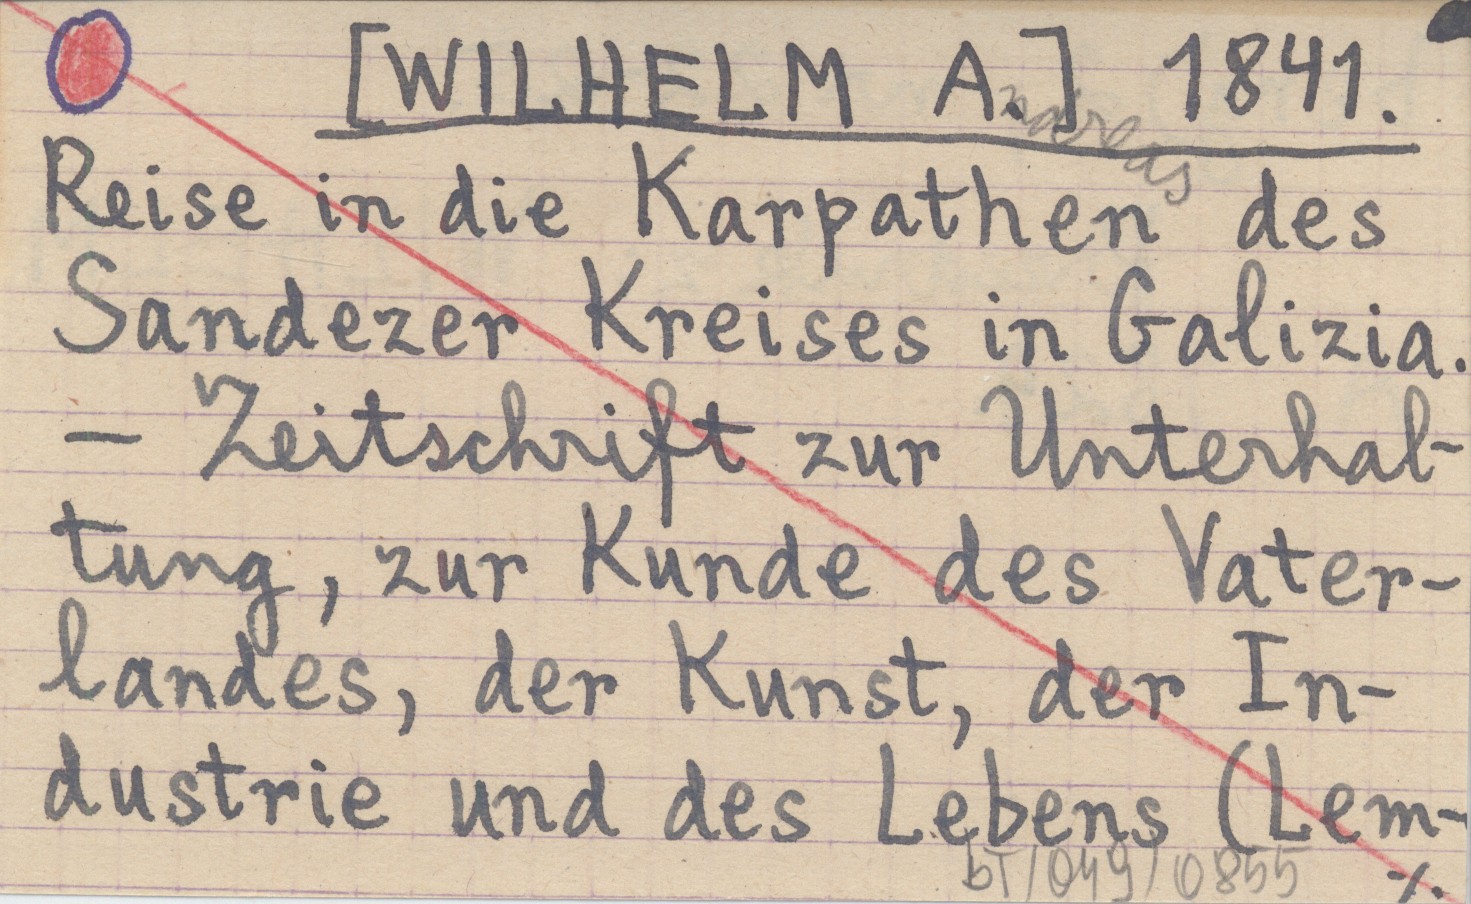 [WILHELM A.] 1841.
ndreas
Reise in die Karpathen des
Sandezer Kreises in Galizia.
– Zeitschrift zur Unterhal-
tung, zur Kunde des Vater-
landes, der Kunst, der In-
dustrie und des Lebens (Lem-
bT/049/0855
./.